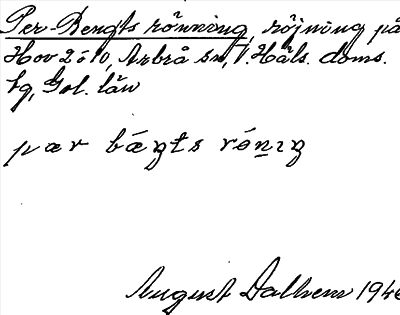 Per-Bengts rönning, röjning på
Hov 2 o 10, Arbrå sn, V. Häls. doms.
tg, Gol. län
pær bæŋts rǿnıŋ
August Dalhem 1946